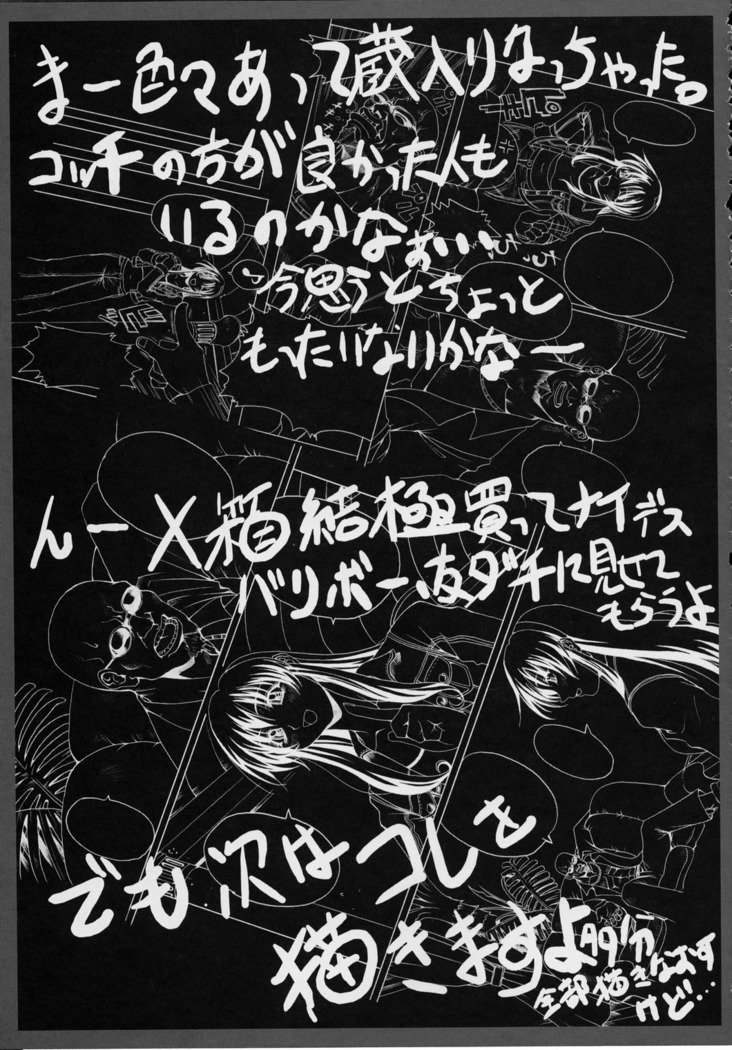 まー色々あって蔵入りなっちゃった。
コッチの方が良かった人も
いるのかなぁ…
今思うとちょっと
もったいないかなー
んーX箱結極買ってナイデス
バリボー、友ダチに見せて
もらうよ
でも次はコレを
描きますよ
多分
全部描きなおす
けど…